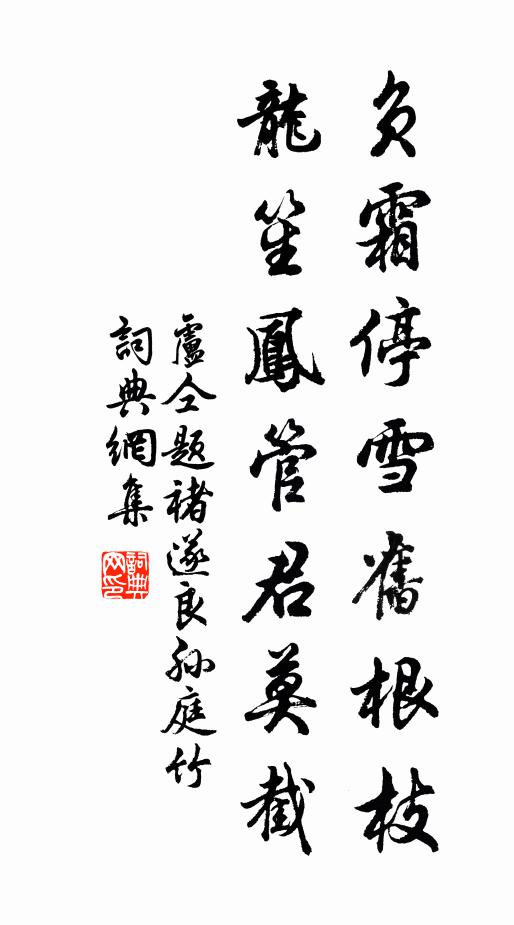 负霜停雪舊根枝
龍笙鳳管君莫截
盧仝題褚遂良孫庭竹
詞典網集
詞典网印